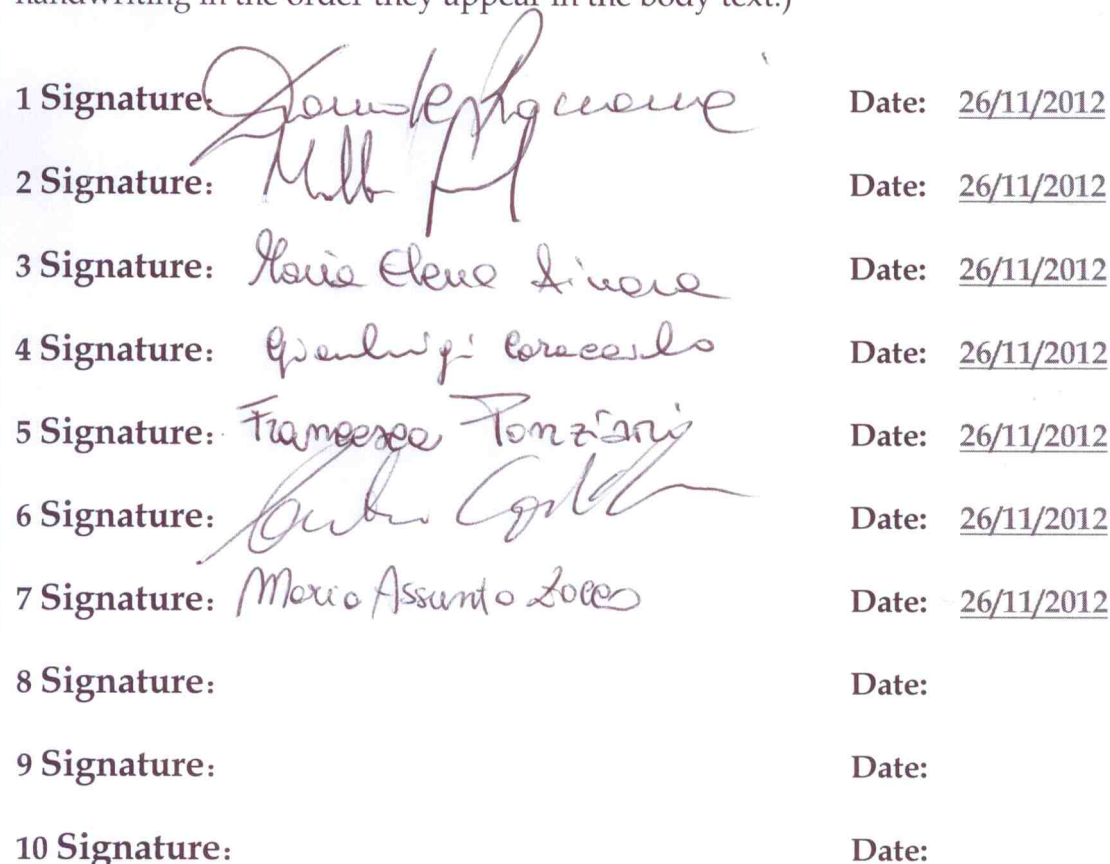 handwriting in the order they appear in the body text.)
1 Signature: Date: 26/11/2012
2 Signature: Date: 26/11/2012
3 Signature: Maria Elena Ainora Date: 26/11/2012
4 Signature: Gianluigi Caracciolo Date: 26/11/2012
5 Signature: Francesca Ponziani Date: 26/11/2012
6 Signature: Date: 26/11/2012
7 Signature: Maria Assunta Zocco Date: 26/11/2012
8 Signature: Date:
9 Signature: Date:
10 Signature: Date: